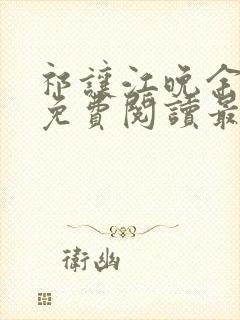 祁讓江晚余
免費閱讀最
衛幽